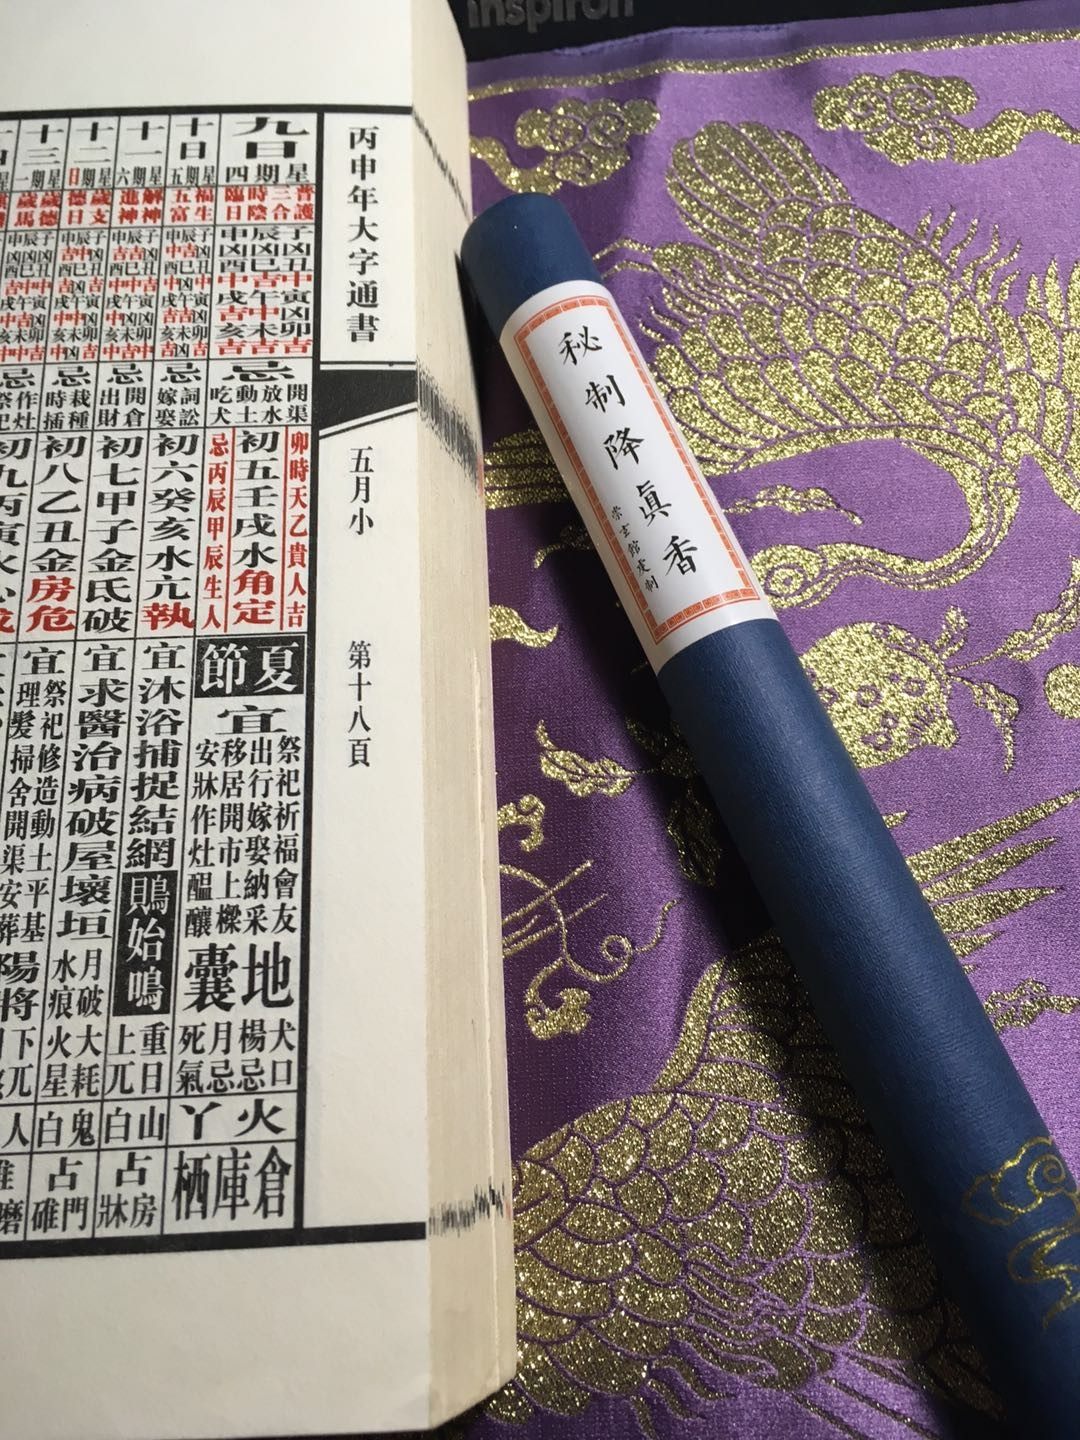 inspiron
丙申年大字通書
五月小
第十八頁
九日
星期四
普護
三合
時陰
臨日
子凶丑中寅凶卯吉
辰凶巳吉午中未吉
申凶酉中戌吉亥吉
忌
開渠
放水
動土
吃犬
卯時天乙貴人吉
初五壬戌水角定
忌丙辰甲辰生人
夏節
宜
祭祀祈福會友
出行嫁娶納采
移居開市上樑
安牀作灶醞釀
地囊
犬口
楊忌
月忌
死氣
火丫
倉庫栖
十日
星期五
福生
五富
忌
詞訟
嫁娶
初六癸亥水亢執
宜沐浴捕捉結網
鵙始鳴
重日
上兀
山白
房
占牀
十一
星期六
解神
進神
忌
開倉
出財
初七甲子金氐破
宜求醫治病破屋壞垣
月破
大耗
水痕
火星
鬼白
門
占碓
十二
星期日
歲支
德日
忌
栽種
時插
初八乙丑金房危
宜
祭祀修造動土平基
理髮掃舍開渠安葬
陽將
十三
星期一
歲德
歲馬
忌
作灶
祭祀
秘制降真香
崇玄館虔制